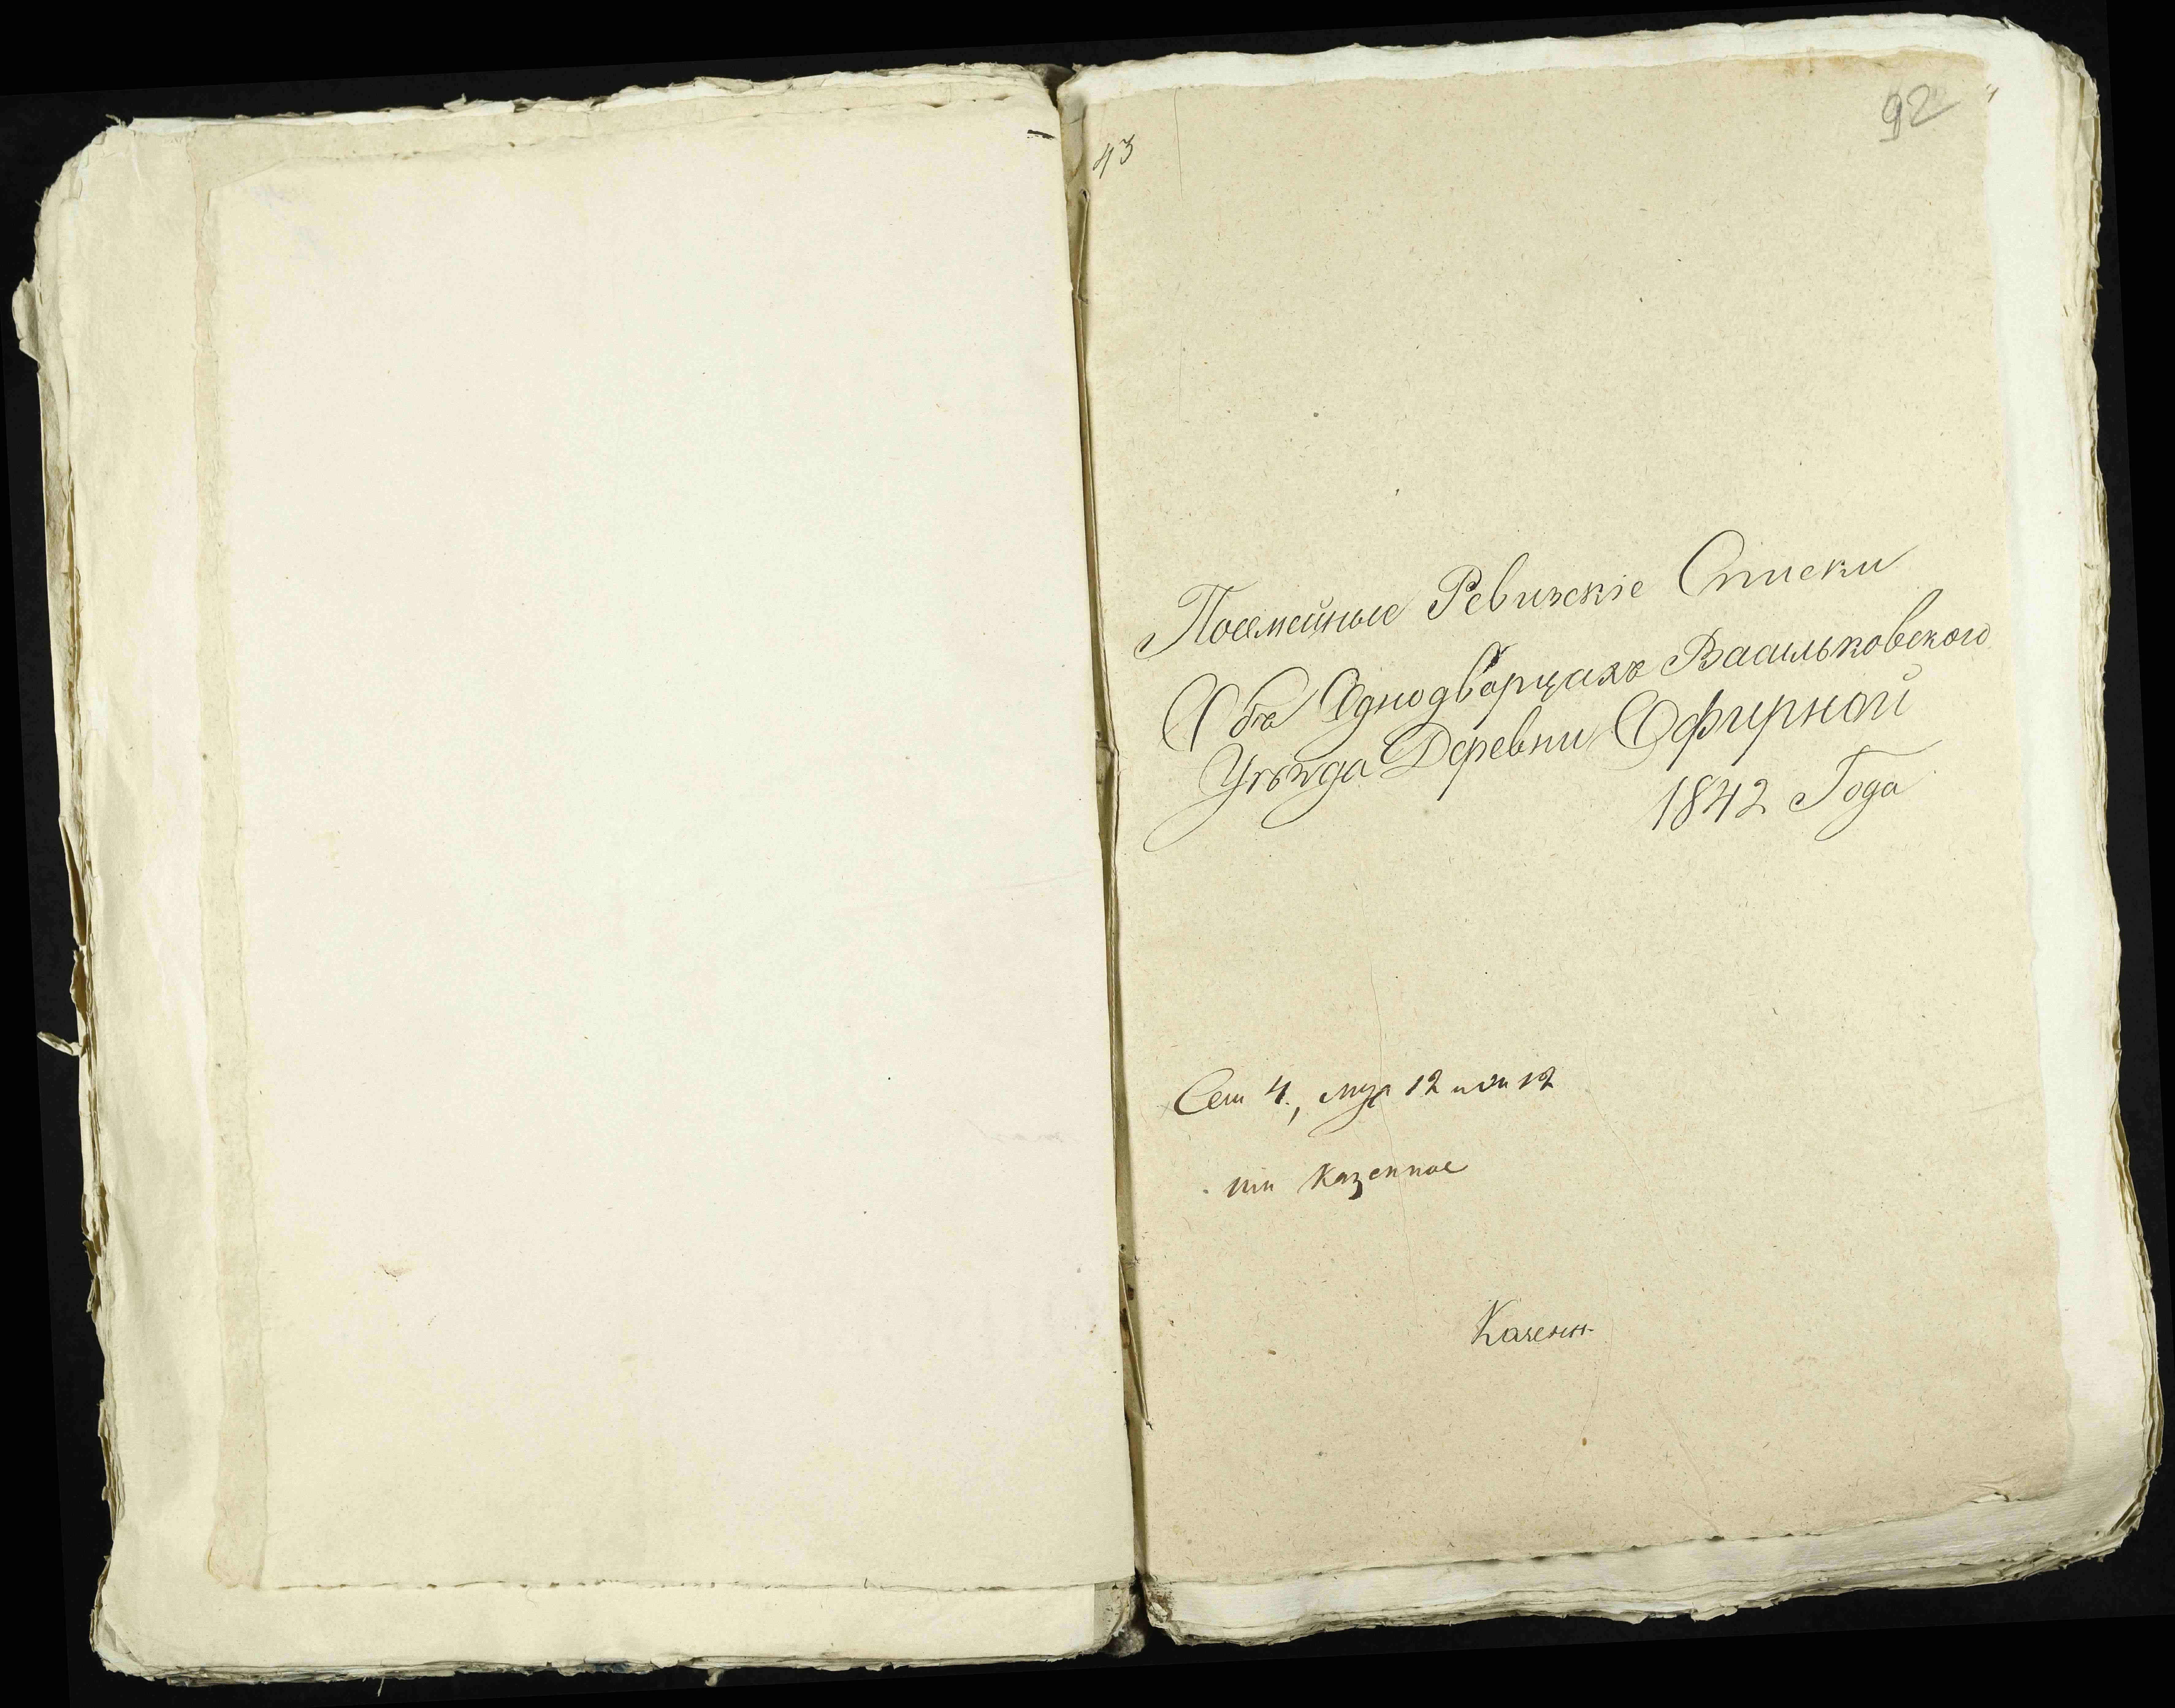 43
92
Посемейные Ревизскіе Списки
Объ Однодворцахъ Васильковского
Уѣзда Деревни Офирной
1842 Года
Сем 4., муж 12 жен 12
Казенное
Казенн